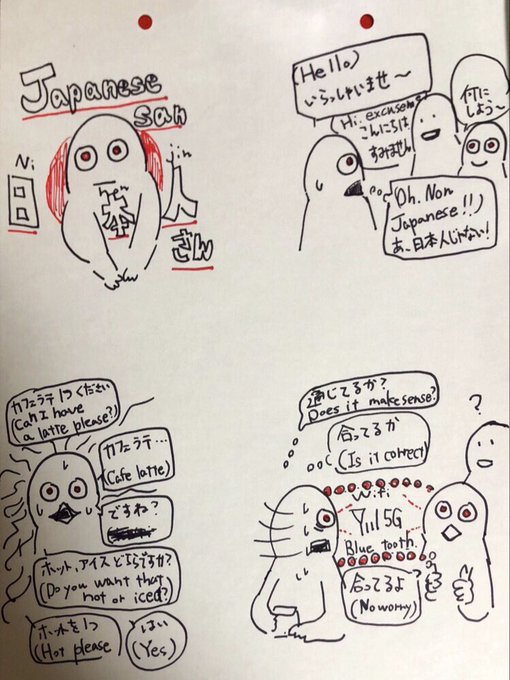 Japanese
san
Ni
hon
jin
日
本
人
さん
(Hello)
いらっしゃいませ〜
Hi, excuse me
こんにちは
すみません
何に
しよう〜
(Oh. Non
Japanese!!)
あ、日本人じゃない!
カフェラテ1つください
(Can I have
a latte please?)
カフェラテ…
(Cafe latte)
ですね?
ホット、アイスどちらですか?
(Do you want that
hot or iced?)
ホットを1つ
(Hot please
はい
(Yes)
通じてるか?
Does it make sense?
合ってるか
(Is it correct)
?
Wifi
5G
Blue tooth.
合ってるよ
(No worry)